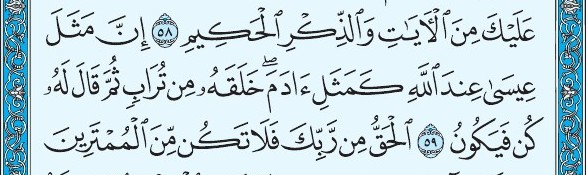 عَلَيْكَ مِنَ ٱلْأٓيَٰتِ وَٱلذِّكْرِ ٱلْحَكِيمِ ٥٨ إِنَّ مَثَلَ
عِيسَىٰ عِندَ ٱللَّهِ كَمَثَلِ ءَادَمَۖ خَلَقَهُۥ مِن تُرَابٍ ثُمَّ قَالَ لَهُۥ
كُن فَيَكُونُ ٥٩ ٱلْحَقُّ مِن رَّبِّكَ فَلَا تَكُن مِّنَ ٱلْمُمْتَرِينَ